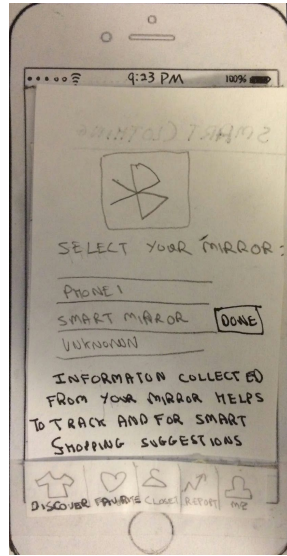 9:23 PM 100%
SMART CLOTHING
SELECT YOUR MIRROR:
PHONE 1
SMART MIRROR DONE
UNKNONN
INFORMATON COLLECTED
FROM YOUR MIRROR HELPS
TO TRACK AND FOR SMART
SHOPPING SUGGESTIONS
DISCOVER FAVORITE CLOSET REPORT ME